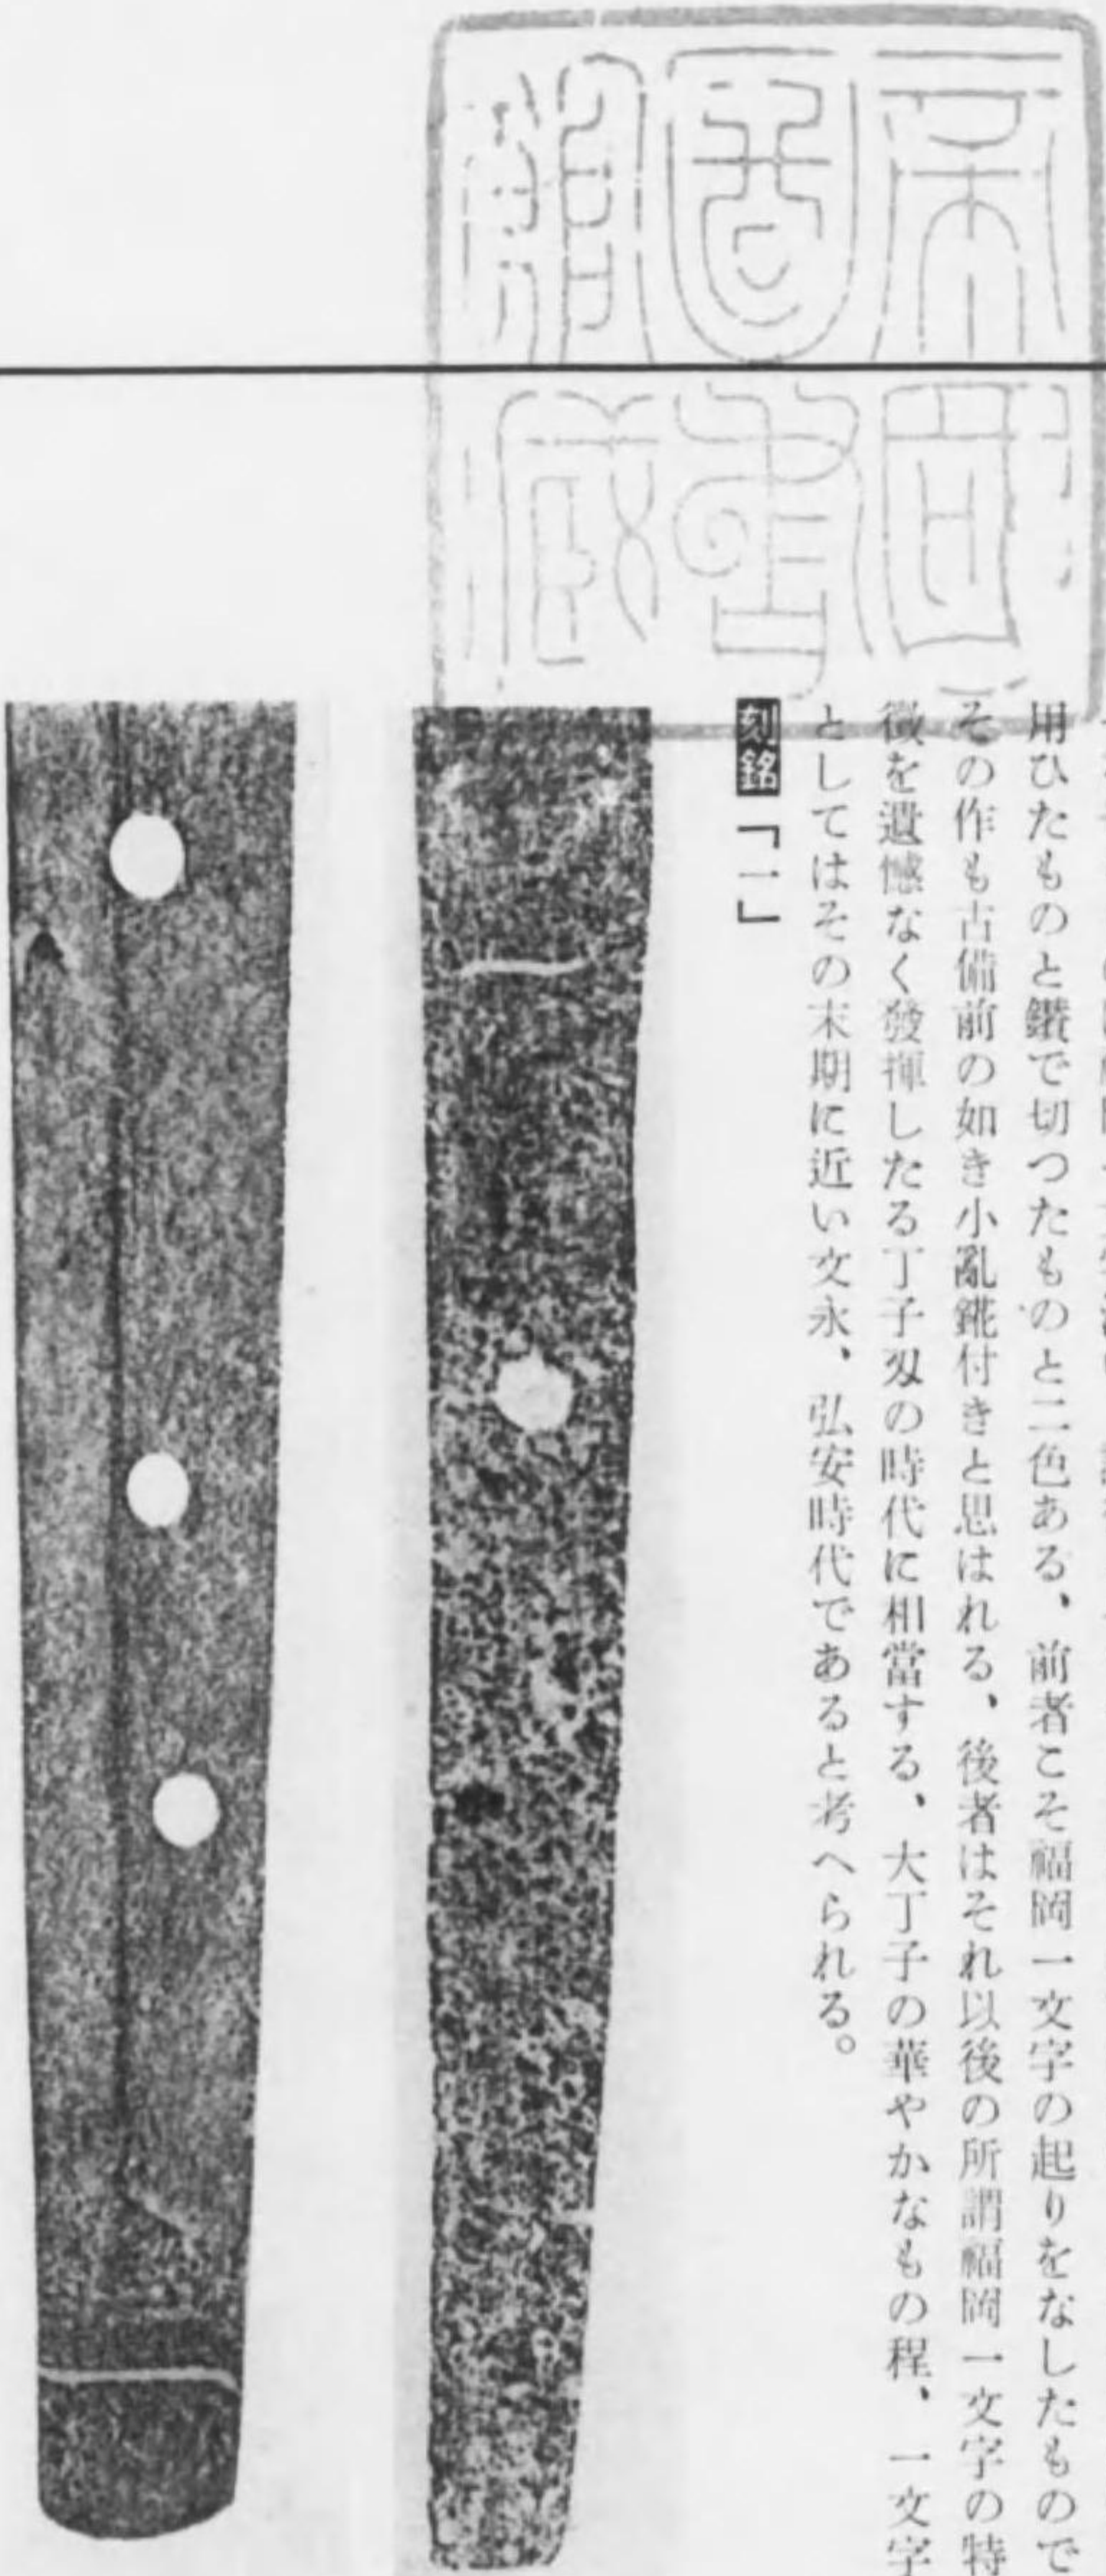 用ひたものと鑽で切つたものと二色ある、前者こそ福岡一文字の起りをなしたもので
その作も古備前の如き小亂錵付きと思はれる、後者はそれ以後の所謂福岡一文字の特
徴を遺憾なく發揮したる丁子刄の時代に相當する、大丁子の華やかなもの程、一文字
としてはその末期に近い文永、弘安時代であると考へられる。
刻銘「一」
帝國圖書館藏